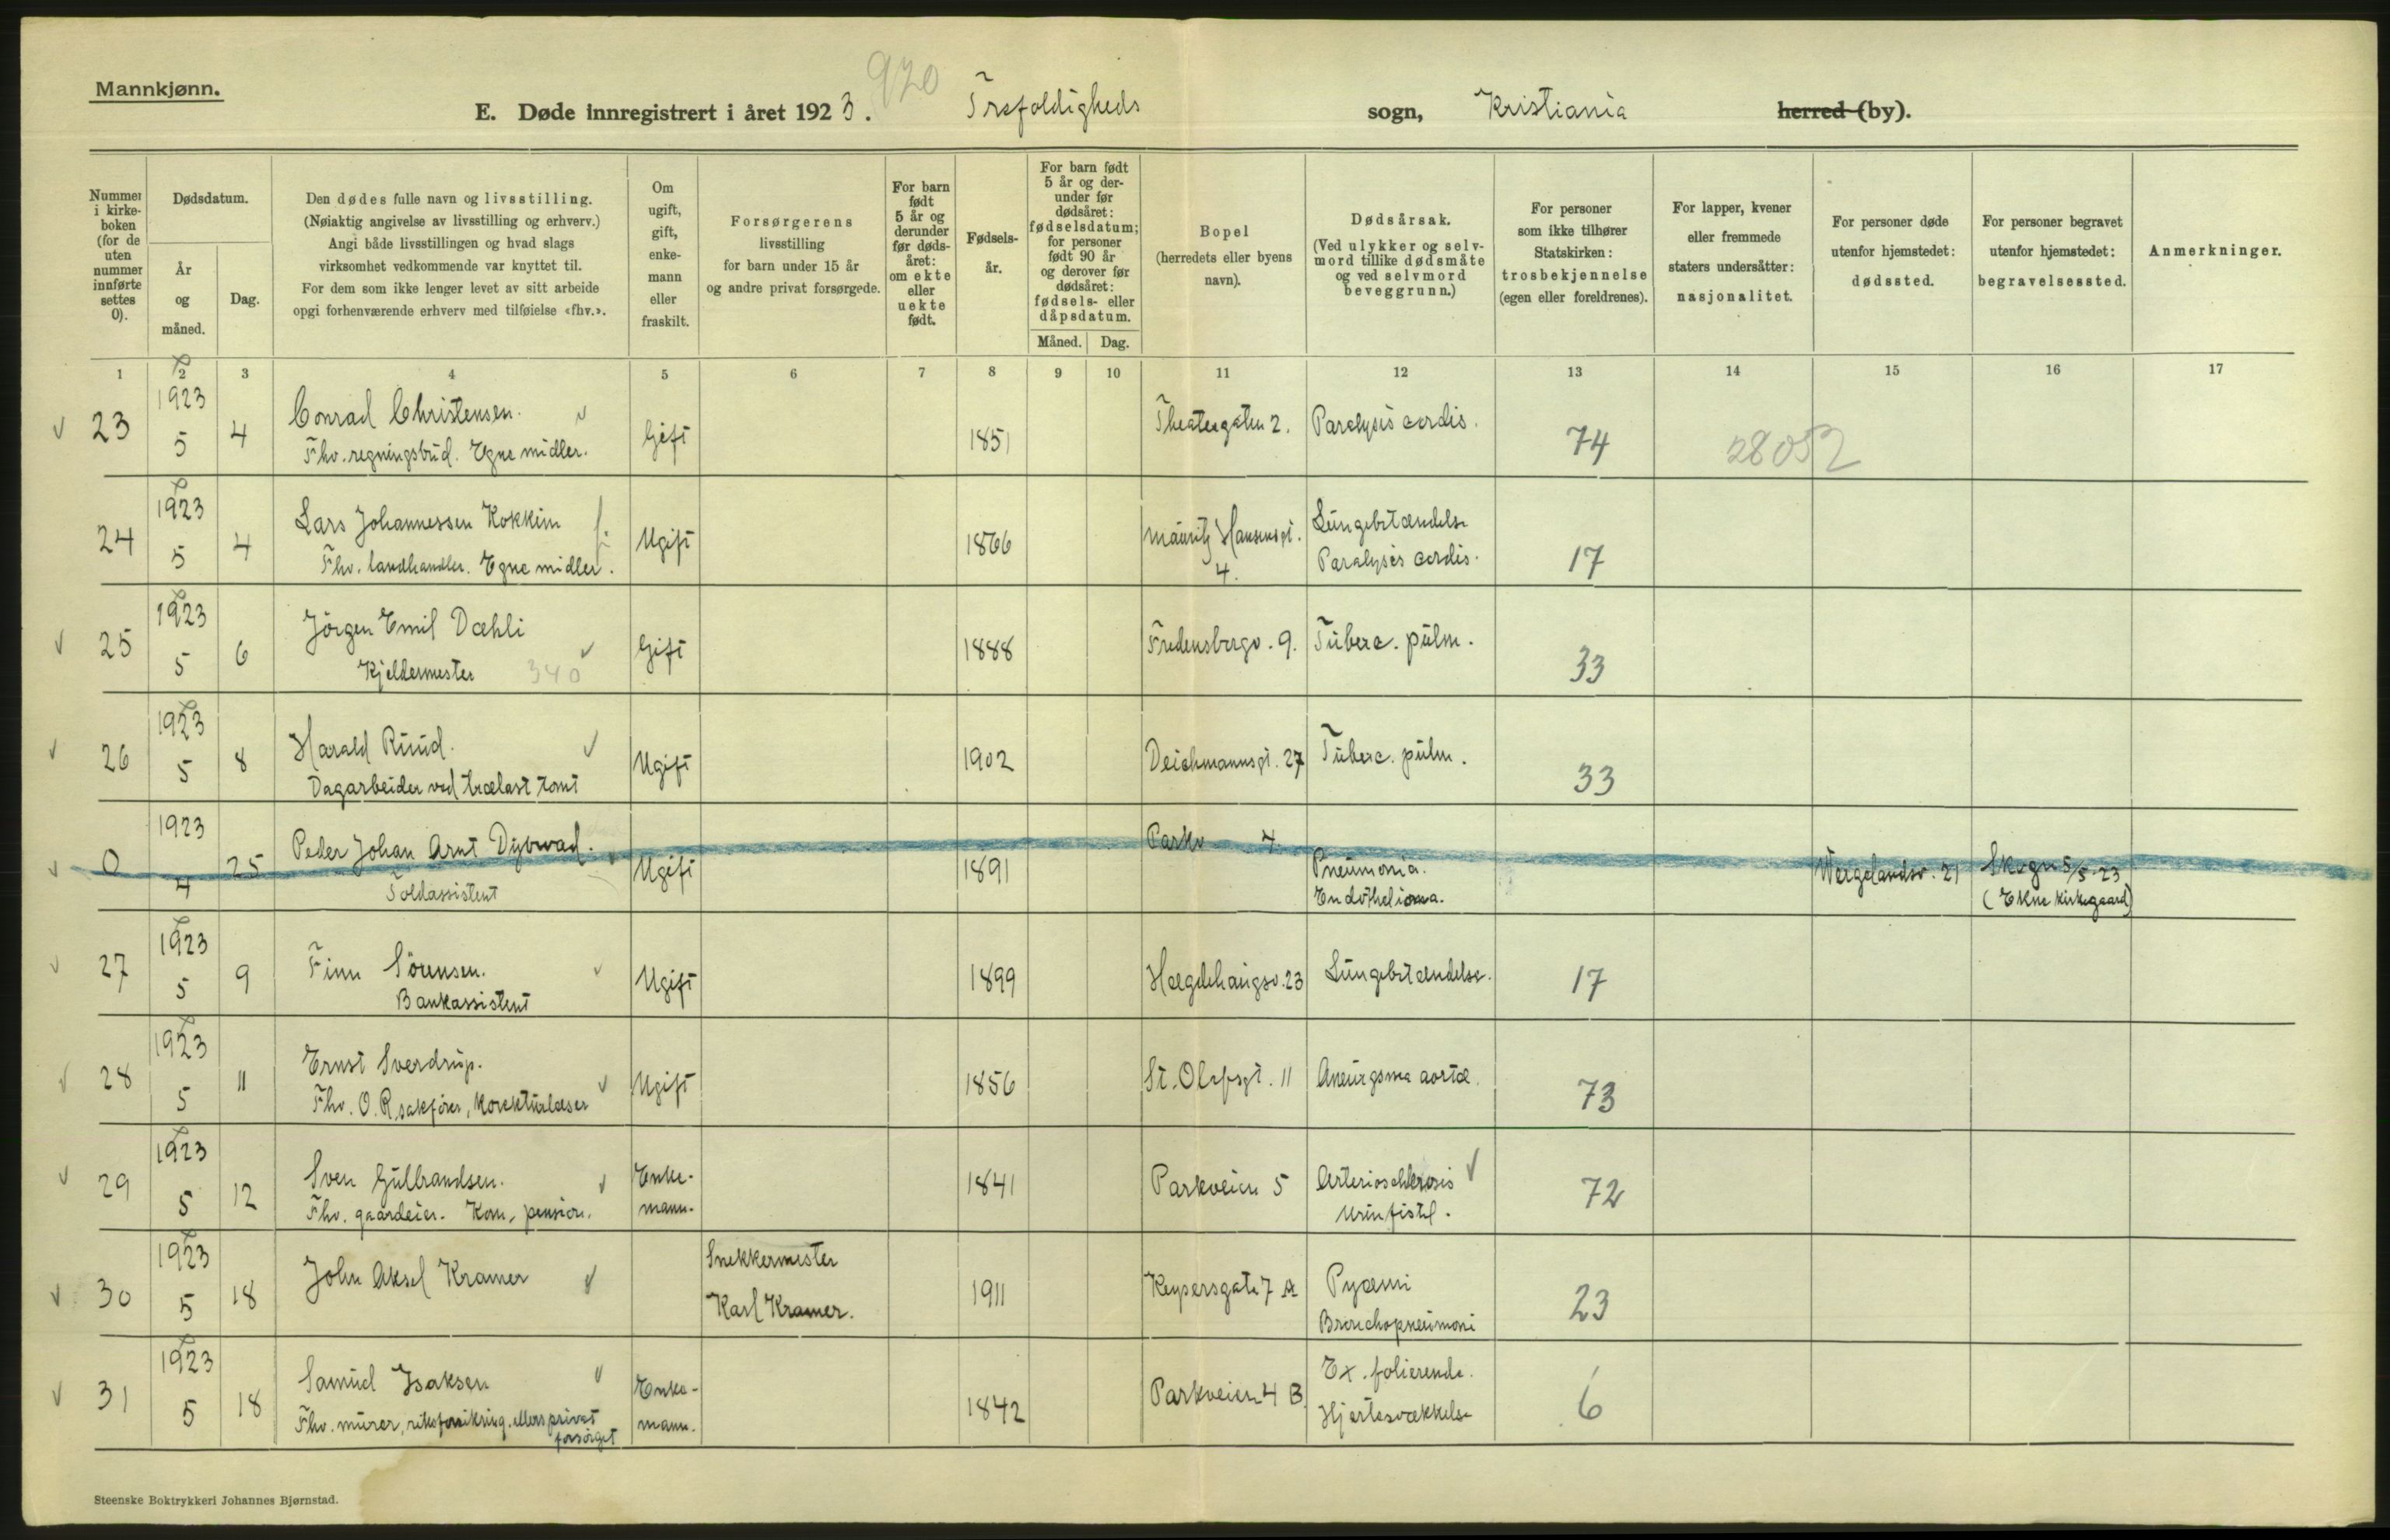 Mannkjønn.
920
E. Døde innregistrert i året 1923. Trefoldigheds sogn, Kristiania herred (by).
Nummer i kirke-boken (for de uten nummer innførte settes 0).
Dødsdatum.
År og måned.
Dag.
Den dødes fulle navn og livsstilling.
(Nøiaktig angivelse av livsstilling og erhverv.)
Angi både livsstillingen og hvad slags
virksomhet vedkommende var knyttet til.
For dem som ikke lenger levet av sitt arbeide
opgi forhenværende erhverv med tilføielse «fhv.».
Om ugift, gift, enke-mann eller fraskilt.
Forsørgerens
livsstilling
for barn under 15 år
og andre privat forsørgede.
For barn født 5 år og derunder før døds-året: om ekte eller uekte født.
Fødsels-år.
For barn født 5 år og der-under før dødsåret: fødselsdatum; for personer født 90 år og derover før dødsåret: fødsels- eller dåpsdatum.
Måned. Dag.
Bopel
(herredets eller byens
navn).
Dødsårsak.
(Ved ulykker og selv-
mord tillike dødsmåte
og ved selvmord
beveggrunn.)
For personer
som ikke tilhører
Statskirken:
trosbekjennelse
(egen eller foreldrenes).
For lapper, kvener
eller fremmede
staters undersåtter:
nasjonalitet.
For personer døde
utenfor hjemstedet:
dødssted.
For personer begravet
utenfor hjemstedet:
begravelsessted.
Anmerkninger.
1 2 3 4 5 6 7 8 9 10 11 12 13 14 15 16 17
23 1923 5 4 Conrad Christensen. Gift 1851 Theatergaten 2. Paralysis cordis. 74 28052
Fhv. regningsbud. Egne midler.
24 1923 5 4 Lars Johannessen Kokkim Ugift 1866 Mauritz Hansensgt. 4. Lungebetændelse 17
Fhv. landhandler. Egne midler. Paralysis cordis.
25 1923 5 6 Jörgen Emil Dæhli Gift 1888 Fredensborgv. 9. Tuberc. pulm. 33
Kjeldermester 340
26 1923 5 8 Harald Ruud. Ugift 1902 Deichmannsgt. 27 Tuberc. pulm. 33
Dagarbeider ved trælast tomt
0 1923 4 25 Peder Johan Arnt Dybwad. Ugift 1891 Parkv 4. Pneumonia. Wergelandsv. 21 Skogn 5/5-23
Toldassistent Endothelioma. (Ekne kirkegaard)
27 1923 5 9 Finn Sörensen. Ugift 1899 Hægdehaugsv. 23 Lungebetændelse. 17
Bankassistent
28 1923 5 11 Ernst Sverdrup. Ugift 1856 St. Olafsgt. 11 Aneurysma aortæ. 73
Fhv. O. R. sakförer, korekturlæser
29 1923 5 12 Sven Gulbrandsen. Enke-mann. 1841 Parkveien 5 Arterioschlerosis 72
Fhv. gaardeier. Kom. pension. Urinfistel.
30 1923 5 18 John Aksel Kramer Snekkermester Karl Kramer. 1911 Keysersgate 7 A Pyæmi 23
Bronchopneumoni
31 1923 5 18 Samuel Isaksen Enke-mann. 1842 Parkveien 4 B. Ex. folierende. 6
Fhv. murer, riksforsikring. ellers privat forsörget Hjertesvækkelse
Steenske Boktrykkeri Johannes Bjørnstad.